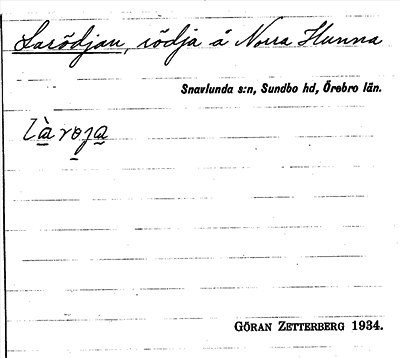 Larödjan, rödja å Norra Hunna
Snavlunda s:n, Sundbo hd, Örebro län.
làrøja
GÖRAN ZETTERBERG 1934.